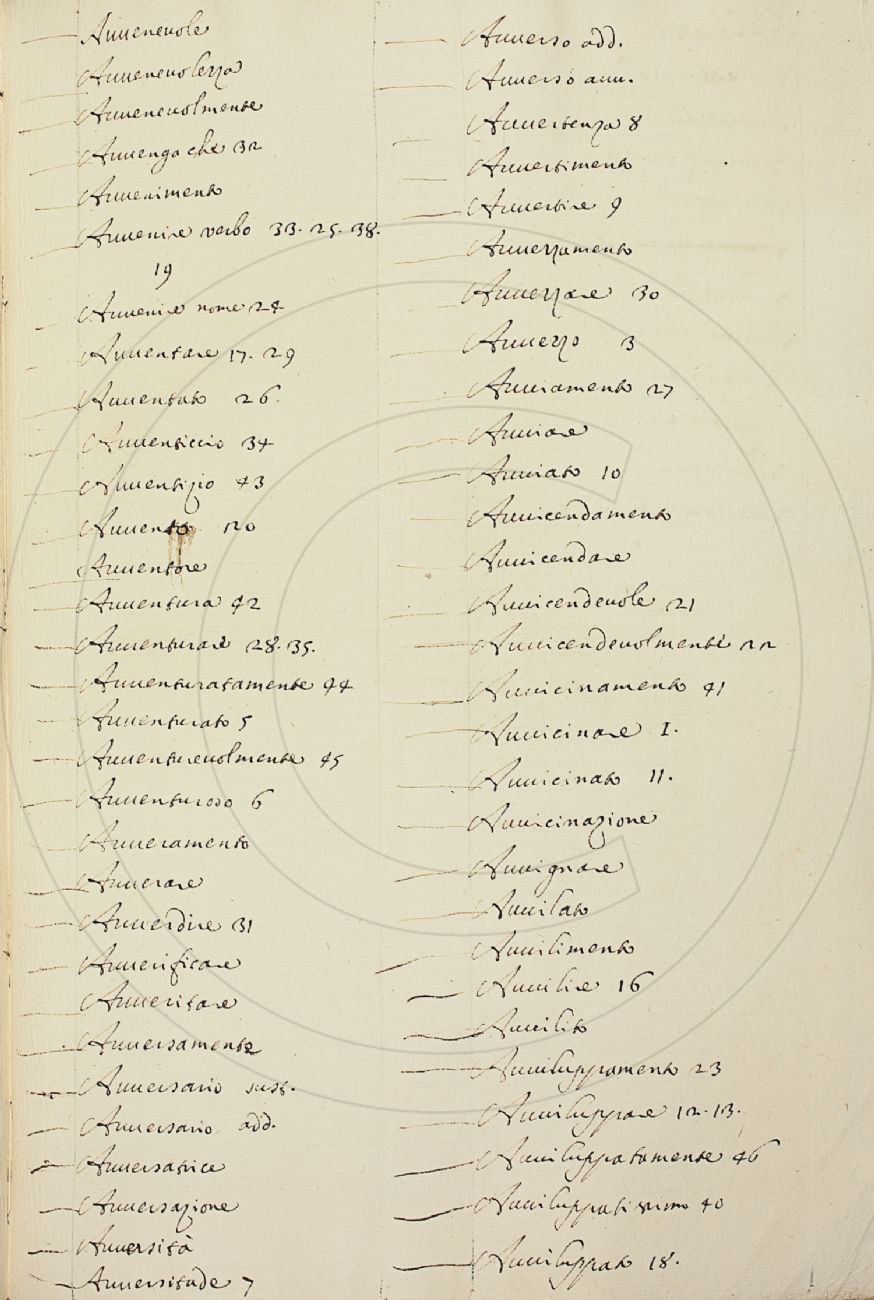 Auuenevole
Auuenevolezza
Auuenevolmente
Auuenga che 32
Auuenimento
Auuenire verbo 33. 25. 38.
19
Auuenire nome 24
Auuentare 17. 29
Auuentato 26.
Auuenticcio 34
Auuentizio 43
Auuento 20
Auuentore
Auuentura 42
Auuenturare 28. 35.
Auuenturatamente 44
Auuenturato 5
Auuenturevolmente 45
Auuenturoso 6
Auueramento
Auuerare
Auuerdire 31
Auuerificare
Auueritare
Auuersamente
Auuersario sust.
Auuersario add.
Auuersatrice
Auuersazione
Auuersità
Auuersitade 7
Auuerso add.
Auuerso auu.
Auuertenza 8
Auuertimento
Auuertire 9
Auuezzamento
Auuezzare 30
Auuezzo 3
Auuiamento 27
Auuiare
Auuiato 10
Auuicendamento
Auuicendare
Auuicendevole 21
Auuicendevolmente 22
Auuicinamento 41
Auuicinare 1.
Auuicinato 11.
Auuicinazione
Auuignare
Auuilato
Auuilimento
Auuilire 16
Auuilito
Auuiluppamento 23
Auuiluppare 12. 13.
Auuiluppatamente 46
Auuiluppatissimo 40
Auuiluppato 18.